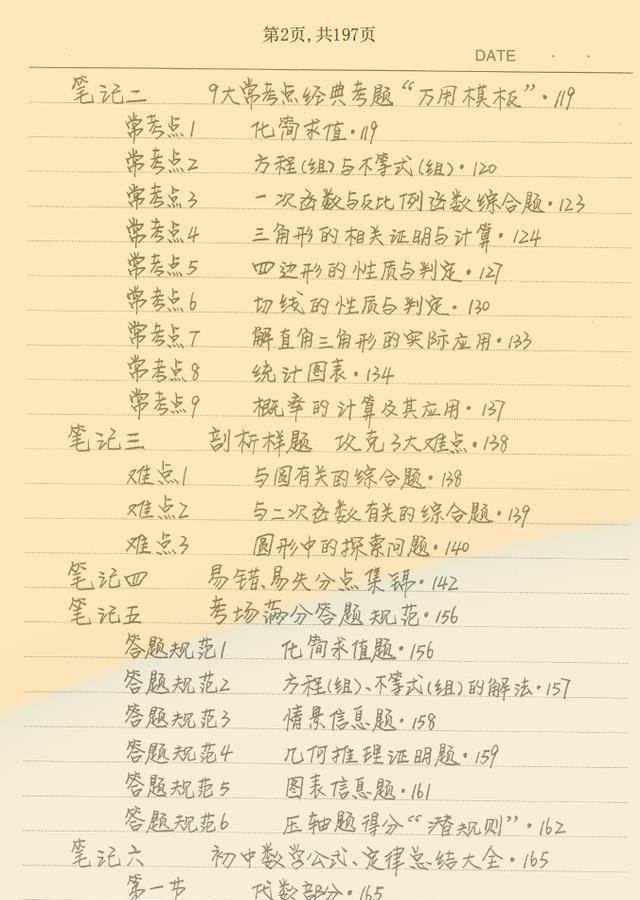 第2页,共197页
DATE · ·
笔记二 9大常考点经典考题“万用模板”·119
常考点1 化简求值·119
常考点2 方程(组)与不等式(组)·120
常考点3 一次函数与反比例函数综合题·123
常考点4 三角形的相关证明与计算·124
常考点5 四边形的性质与判定·127
常考点6 切线的性质与判定·130
常考点7 解直角三角形的实际应用·133
常考点8 统计图表·134
常考点9 概率的计算及其应用·137
笔记三 剖析样题 攻克3大难点·138
难点1 与圆有关的综合题·138
难点2 与二次函数有关的综合题·139
难点3 图形中的探索问题·140
笔记四 易错、易失分点集锦·142
笔记五 考场满分答题规范·156
答题规范1 化简求值题·156
答题规范2 方程(组)、不等式(组)的解法·157
答题规范3 情景信息题·158
答题规范4 几何推理证明题·159
答题规范5 图表信息题·161
答题规范6 压轴题得分“潜规则”·162
笔记六 初中数学公式、定律总结大全·165
第一节 代数部分·165